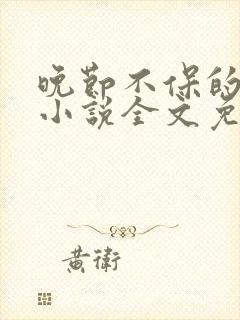 晚节不保的
小说全文免
黄衛